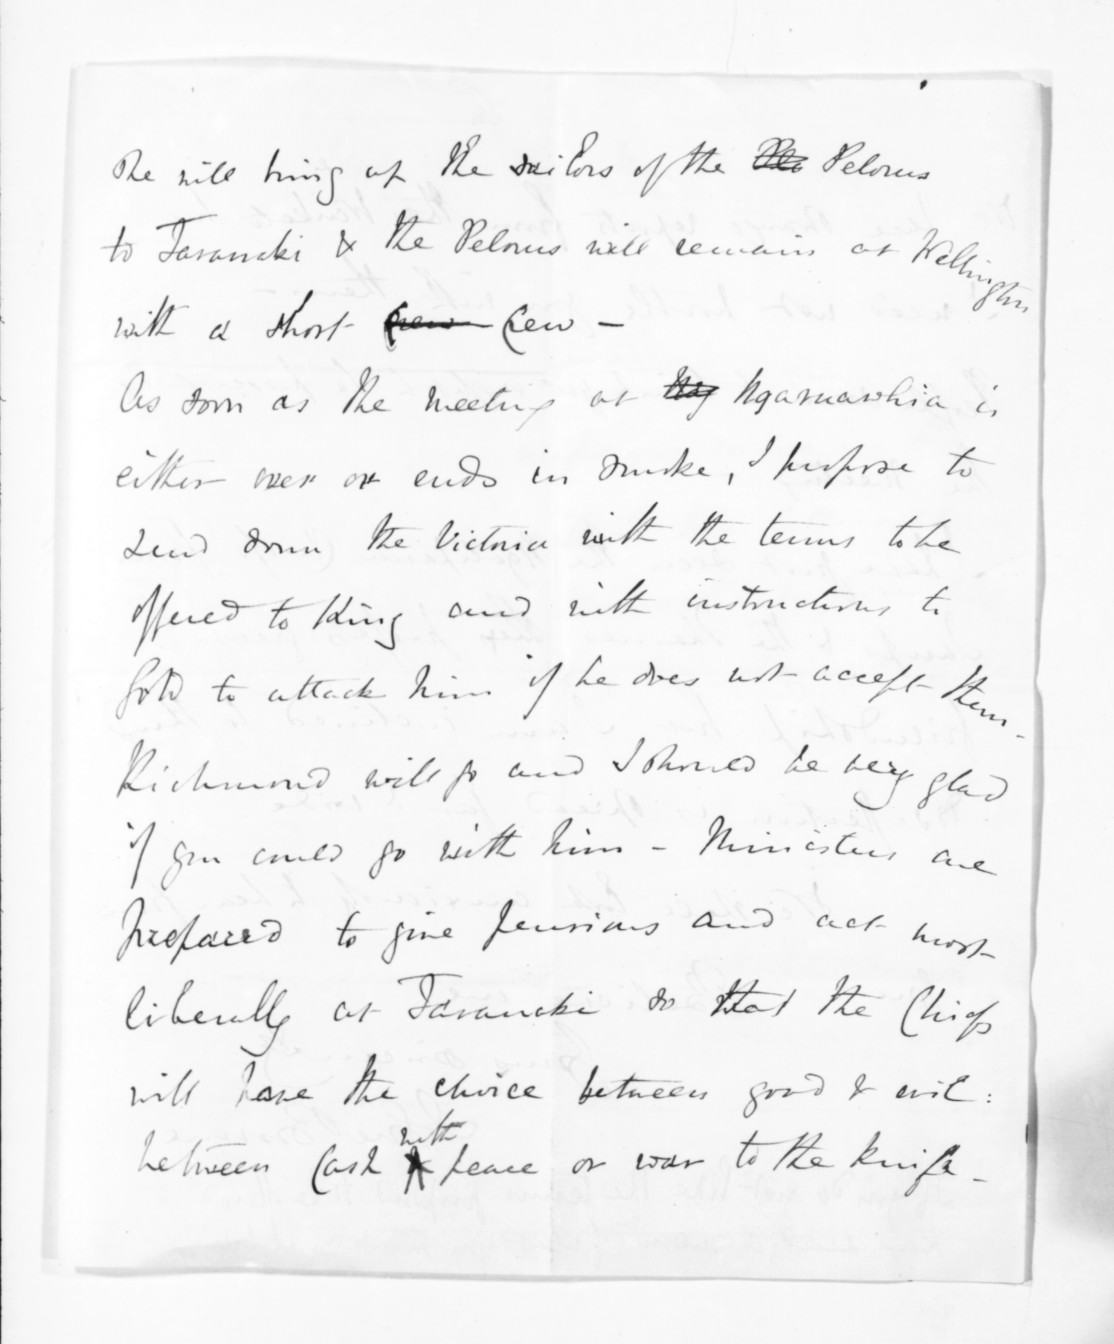 She will bring up the sailors of the Pelorus
to Taranaki & the Pelorus will remain at Wellington
with a short crew Crew —
As soon as the meeting at Ng Ngaruawhia is
either over or ends in smoke, I propose to
send down the Victoria with the terms to be
offered to King and with instructions to
Gold to attack him if he does not accept them -
Richmond will go and I should be very glad
if you could go with him - Ministers are
prepared to give pensions and act most
liberally at Taranaki so that the Chiefs
will have the choice between good & evil :
between Cash with peace or war to the knife -